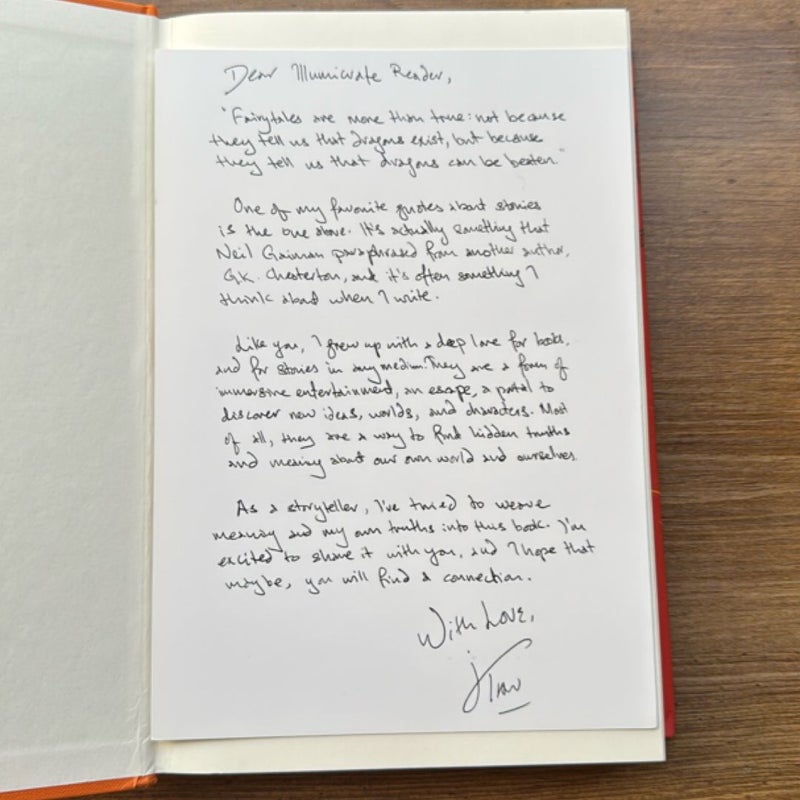 Dear Illumicrate Reader,
"Fairytales are more than true: not because
they tell us that dragons exist, but because
they tell us that dragons can be beaten."
One of my favorite quotes about stories
is the one above. It's actually something that
Neil Gaiman paraphrased from another author,
G.K. Chesterton, and it's often something I
think about when I write.
Like you, I grew up with a deep love for books,
and for stories in any medium. They are a form of
immersive entertainment, an escape, a portal to
discover new ideas, worlds, and characters. Most
of all, they are a way to find hidden truths
and meaning about our own world and ourselves.
As a storyteller, I've tried to weave
meaning and my own truths into this book. I'm
excited to share it with you, and I hope that
maybe, you will find a connection.
With Love,